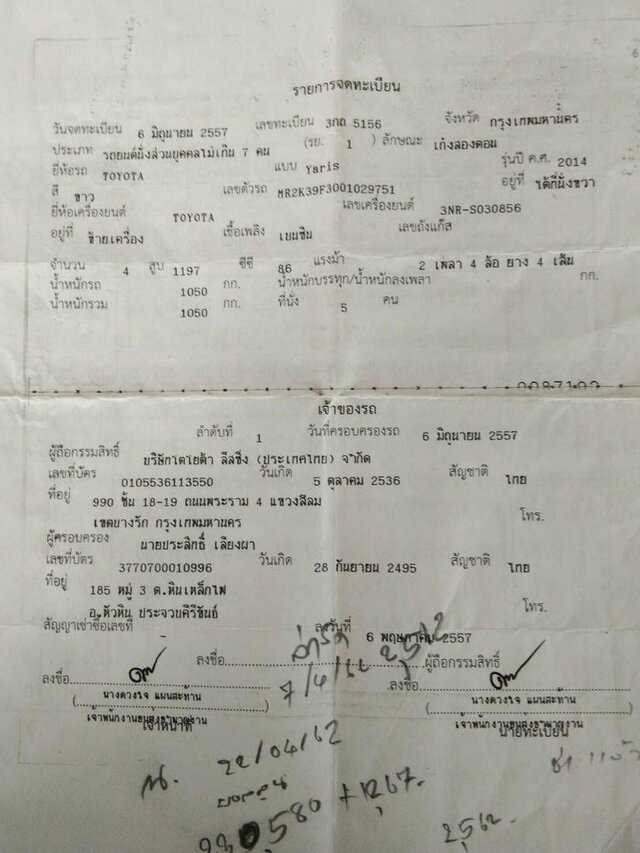 รายการจดทะเบียน
วันจดทะเบียน 6 มิถุนายน 2557 เลขทะเบียน 3กถ 5156 จังหวัด กรุงเทพมหานคร
ประเภท รถยนต์นั่งส่วนบุคคลไม่เกิน 7 คน (รย. 1 ) ลักษณะ เก๋งสองตอน
ยี่ห้อรถ TOYOTA แบบ Yaris รุ่นปี ค.ศ. 2014
สี ขาว เลขตัวรถ MR2K39F3001029751 อยู่ที่ ใต้ที่นั่งขวา
ยี่ห้อเครื่องยนต์ TOYOTA เลขเครื่องยนต์ 3NR-S030856
อยู่ที่ ซ้ายเครื่อง เชื้อเพลิง เบนซิน เลขถังแก๊ส
จำนวน 4 สูบ 1197 ซีซี 86 แรงม้า 2 เพลา 4 ล้อ ยาง 4 เส้น
น้ำหนักรถ 1050 กก. น้ำหนักบรรทุก/น้ำหนักลงเพลา กก.
น้ำหนักรวม 1050 กก. ที่นั่ง 5 คน
เจ้าของรถ
ลำดับที่ 1 วันที่ครอบครองรถ 6 มิถุนายน 2557
ผู้ถือกรรมสิทธิ์ บริษัทโตโยต้า ลีสซิ่ง (ประเทศไทย) จำกัด
เลขที่บัตร 0105536113550 วันเกิด 5 ตุลาคม 2536 สัญชาติ ไทย
ที่อยู่ 990 ชั้น 18-19 ถนนพระราม 4 แขวงสีลม
เขตบางรัก กรุงเทพมหานคร โทร.
ผู้ครอบครอง นายประสิทธิ์ เลียงผา
เลขที่บัตร 3770700010996 วันเกิด 28 กันยายน 2495 สัญชาติ ไทย
ที่อยู่ 185 หมู่ 3 ต.หินเหล็กไฟ
อ.หัวหิน ประจวบคีรีขันธ์ โทร.
สัญญาเช่าซื้อเลขที่ ลงวันที่ 6 พฤษภาคม 2557
ลงชื่อ ผู้ถือกรรมสิทธิ์
7/4/62 2562
ลงชื่อ ลงชื่อ
(นางดวงใจ แผนสะท้าน) (นางดวงใจ แผนสะท้าน)
เจ้าพนักงานขนส่งชำนาญงาน เจ้าพนักงานขนส่งชำนาญงาน
เจ้าหน้าที่ นายทะเบียน
22/04/62
2562.